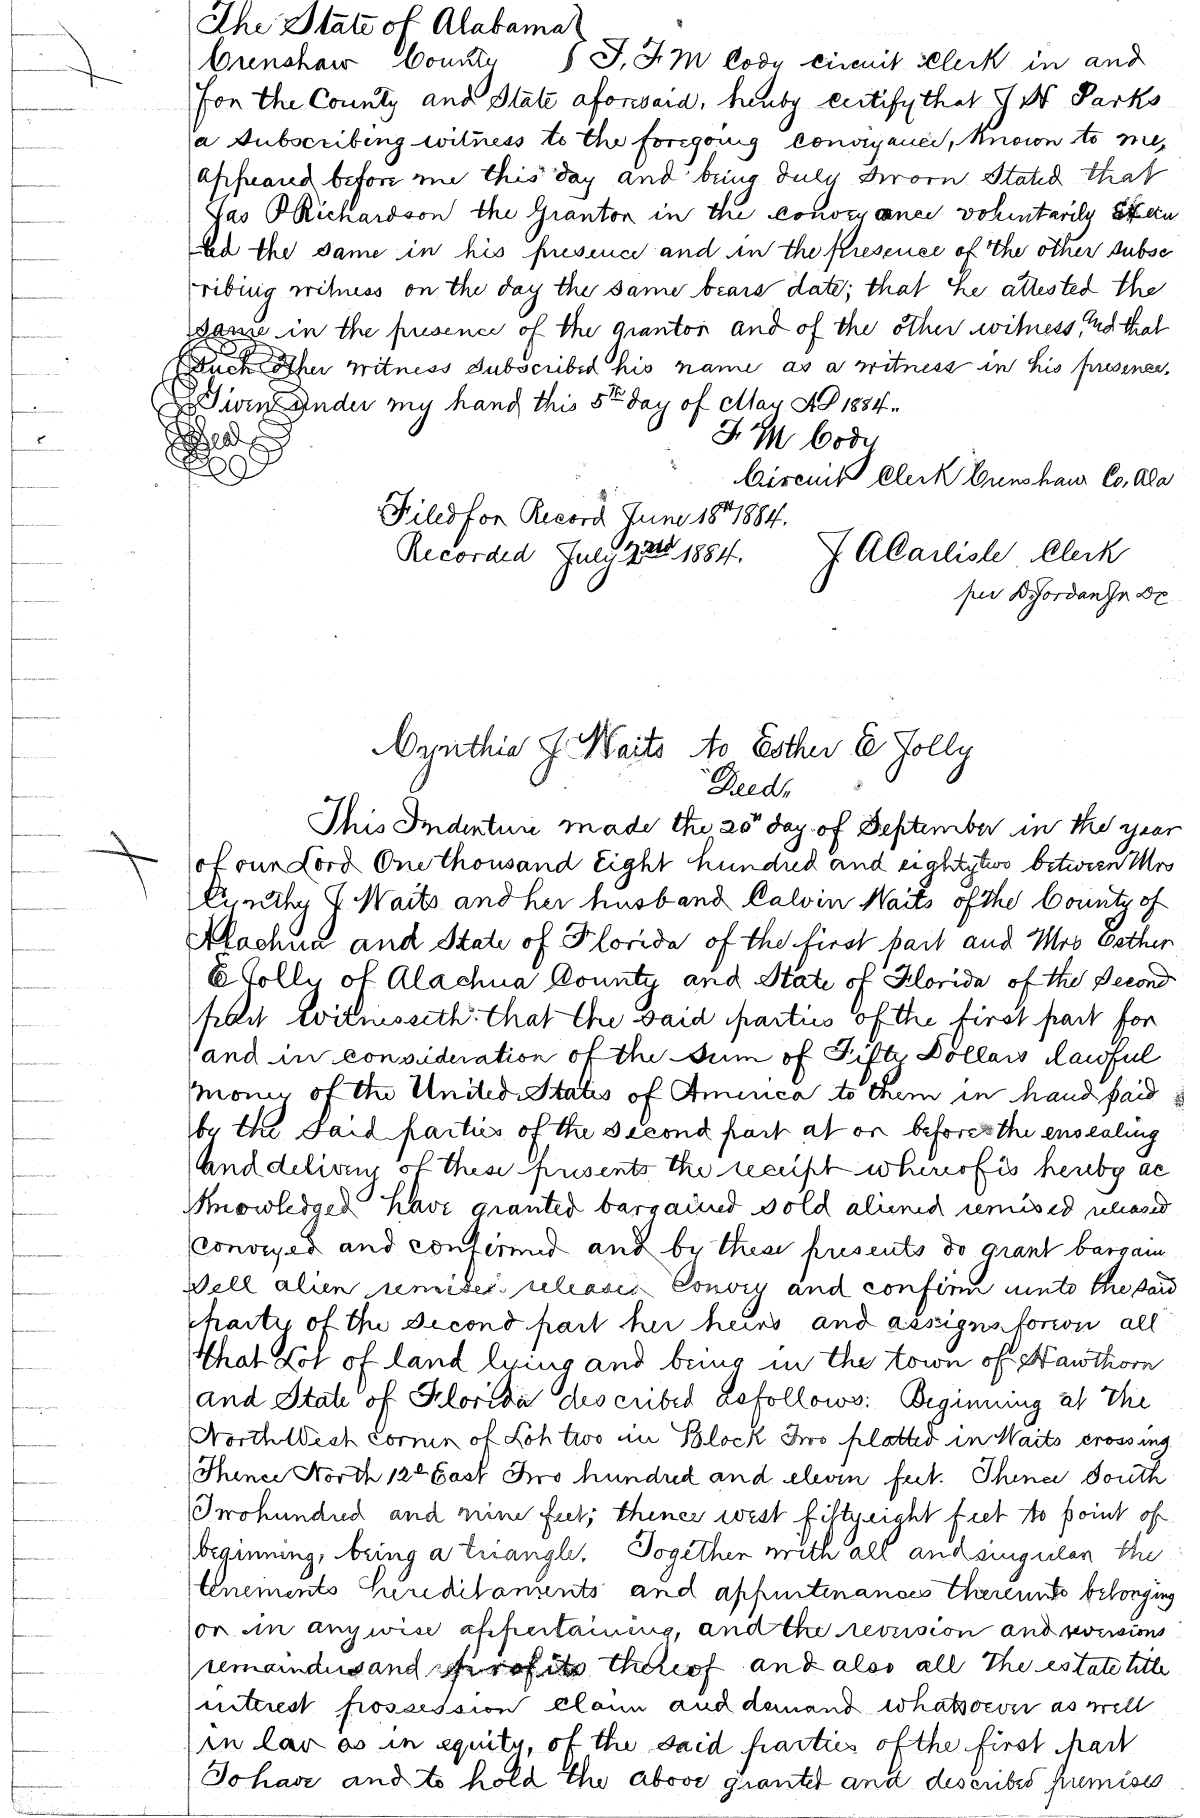 The State of Alabama
Crenshaw County I, F. M Cody circuit Clerk in and
for the County and State aforesaid, hereby certify that J W Parks
a subscribing witness to the foregoing conveyance, known to me,
appeared before me this day and being duly sworn stated that
Jas P Richardson the Grantor in the conveyance voluntarily Execu
ted the same in his presence and in the presence of the other subsc
ribing witness on the day the same bears date; that he attested the
same in the presence of the grantor and of the other witness, and that
such other witness subscribed his name as a witness in his presence.
Given under my hand this 5th day of May AD 1884.
Seal
F M Cody
Circuit Clerk Crenshaw Co, Ala
Filed for Record June 18th 1884.
Recorded July 2nd 1884. J A Carlisle Clerk
per D. Jordan Jr DC
Cynthia J. Waits to Esther E Jolly
Deed.
This Indenture made the 20th day of September in the year
of our Lord One thousand Eight hundred and eighty two between Mrs
Cynthy J Waits and her husband Calvin Waits of the County of
Alachua and State of Florida of the first part and Mrs Esther
E Jolly of Alachua County and State of Florida of the Second
part witnesseth: that the said parties of the first part for
and in consideration of the sum of Fifty Dollars lawful
money of the United States of America to them in hand paid
by the said parties of the second part at or before the ensealing
and delivery of these presents the receipt whereof is hereby ac
knowledged have granted bargained sold aliened remised released
conveyed and confirmed and by these presents do grant bargain
sell alien remises releases convey and confirm unto the said
party of the second part her heirs and assigns forever all
that Lot of land lying and being in the town of Hawthorn
and State of Florida described as follows: Beginning at the
North West corner of Lot two in Block Two platted in Waits crossing
Thence North 12° East Two hundred and eleven feet. Thence South
Two hundred and nine feet; thence west fifty eight feet to point of
beginning; being a triangle. Together with all and singular the
tenements hereditaments and appurtenances thereunto belonging
or in any wise appertaining, and the revision and reversions
remainders and profits thereof and also all the estate title
interest possession claim and demand whatsoever as well
in law as in equity, of the said parties of the first part
To have and to hold the above granted and described premises